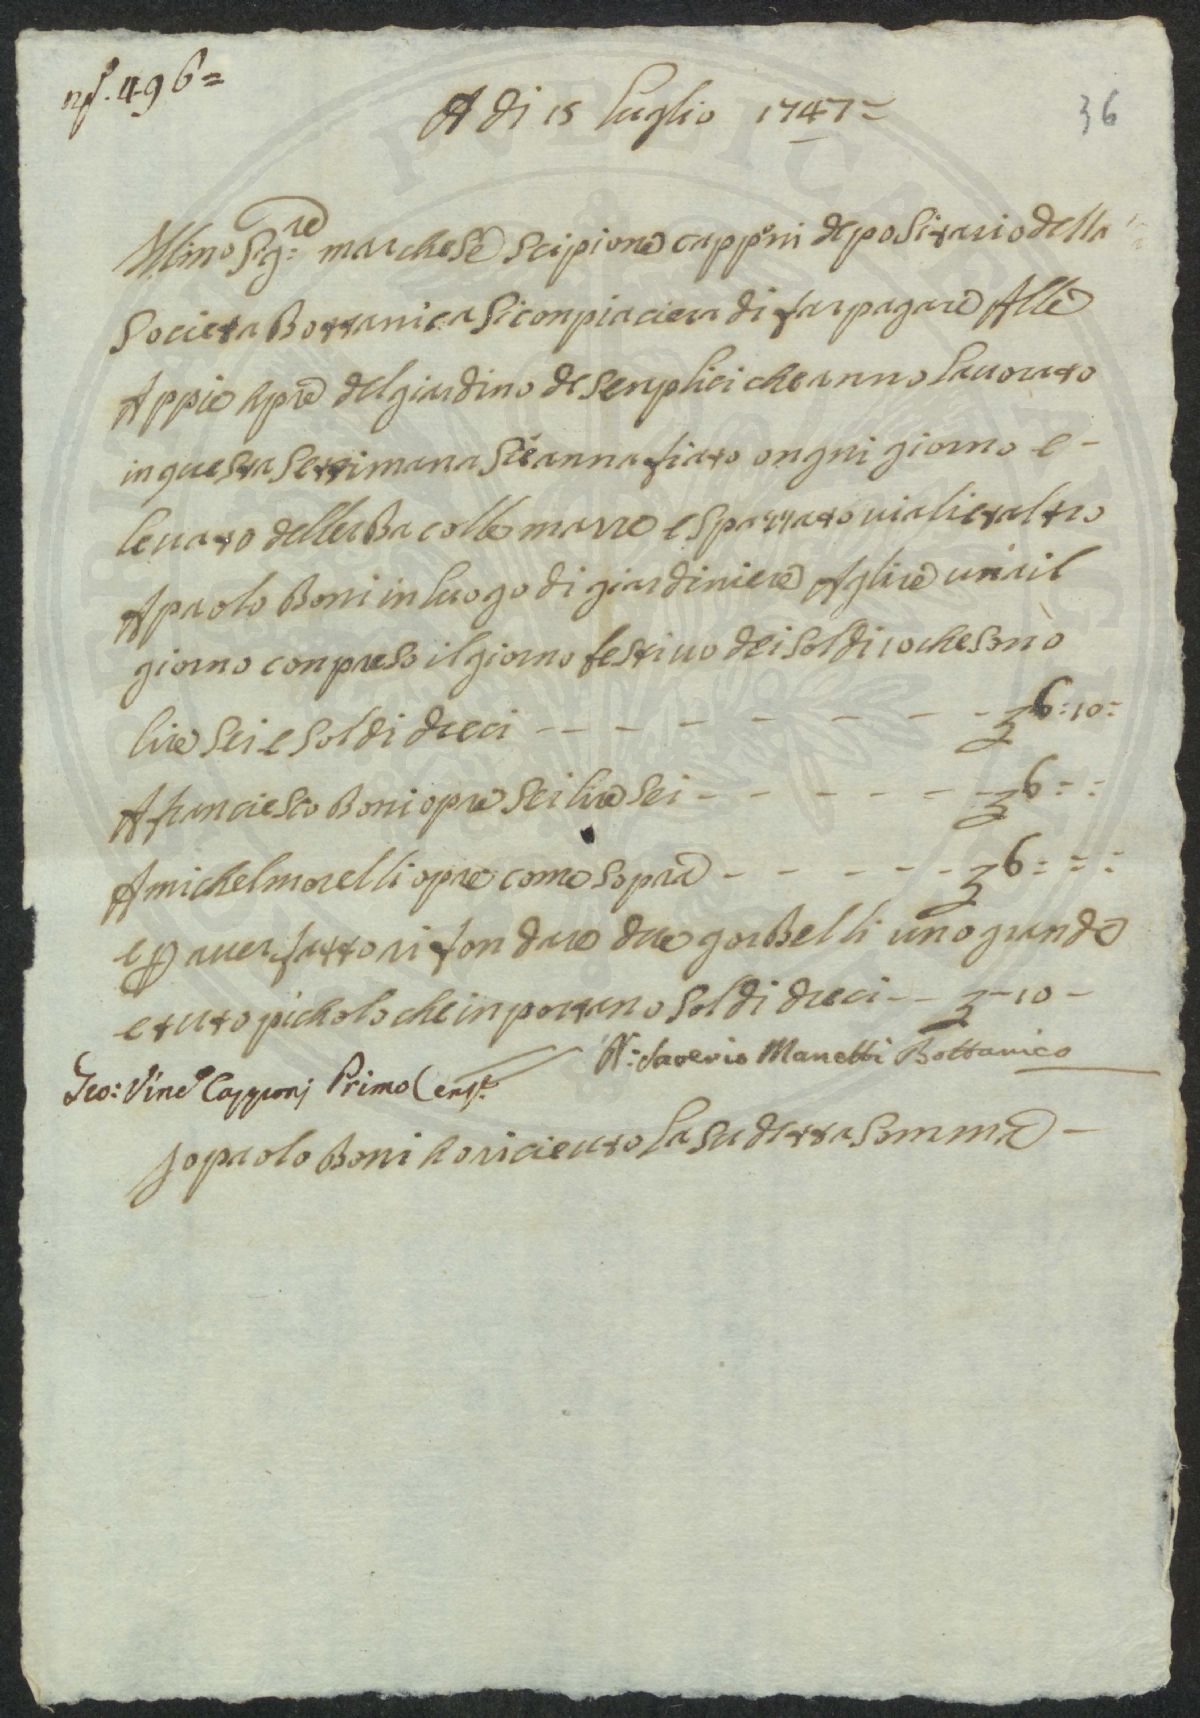 nº. 496=
A di 15 luglio 1747=
36
Illmo Sigre: marchese Scipione capponi depositario della
Societa Bottanica Si conpiaciera di far pagare Alle
Appie opre del giardino de Senplici che anno lauorato
in questa Settimana Sie annafiato ongni giorno e-
leuato dellerba colle marre e spazzato uiali et altro
A paolo Boni in luogo di giardiniere A lire una il
giorno conpreso il giorno festiuo dei soldi 10 che sono
lire sei e soldi dieci - - - - - - - - 6:10:
A franciesco Boni opre sei lire sei - - - - - - 6::
A michel morelli opre come sopra - - - - - 6:::
e p auer fatto rifondare due gorbelli uno grande
et uno picholo che inportano soldi dieci - - -10-
A: Saverio Manetti Bottanico
Gio: Vinco Capponi Primo Cens.
Jo paolo Boni ho riceuuto la su detta somma -